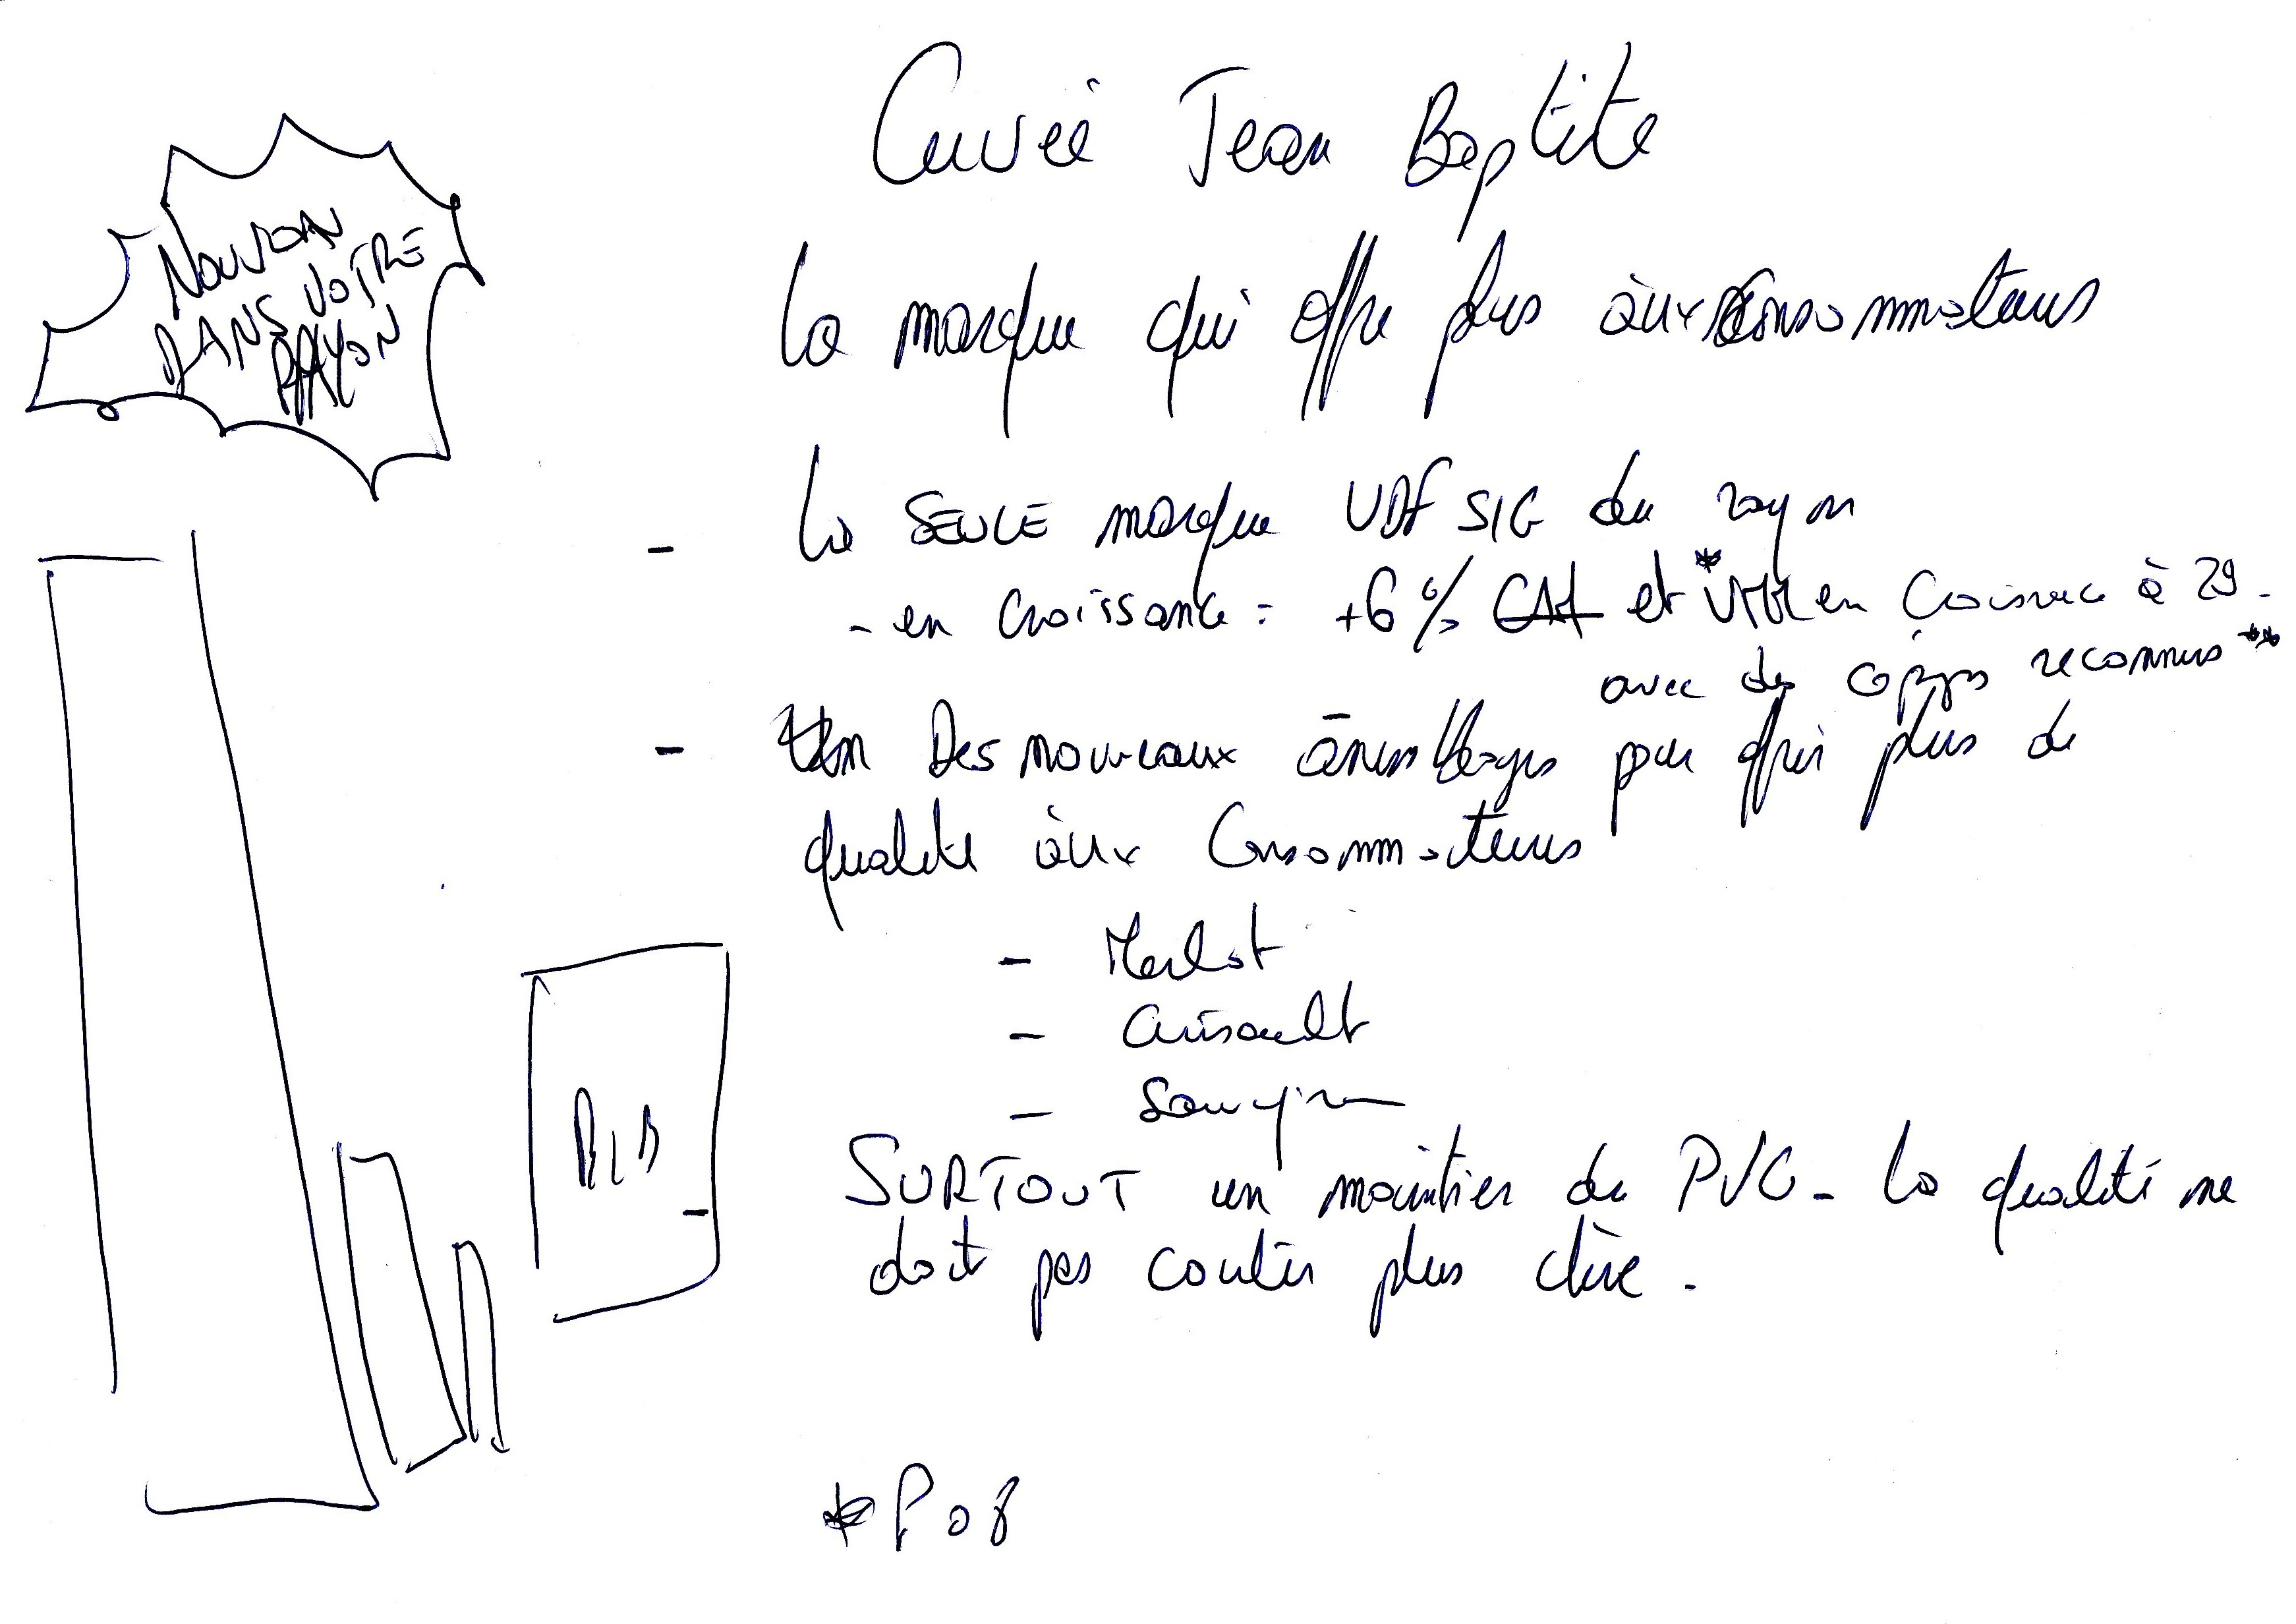 Cuvée Jean Baptite
NOUVEAU
DANS VOTRE
RAYON
La marque qui offre plus aux consommateurs
- La SEULE marque VDF SIG du rayon
- en croissance : +6 % et en croissance à 29.
avec des cépages reconnus **
- Des nouveaux assemblages pour offrir plus de
qualité aux consommateurs
- Merlot
- Cinsault
- Sauvignon
BIB
- SURTOUT un maintien du PVC - La qualité ne
doit pas couter plus chère.
* P08